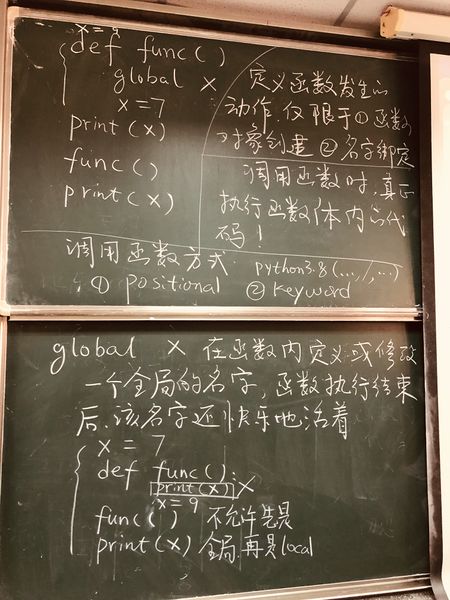 x = 9
def func()
global x
x = 7
print(x)
func()
print(x)
定义函数发生的
动作,仅限于①函数
对象创建 ②名字绑定
调用函数时,真正
执行函数体内的代
码!
调用函数方式 python3.8(…,/,…)
① positional ② keyword
global x 在函数内定义或修改
一个全局的名字,函数执行结束
后,该名字还快乐地活着
x = 7
def func():
print(x) X
x = 9
func() 不允许先是
print(x) 全局,再是local